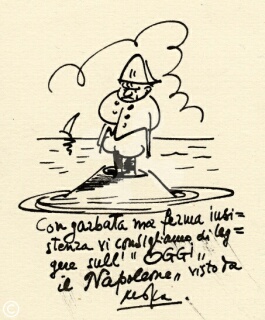 Con garbata ma ferma insi=
stenza vi consigliamo di leg=
gere sull' "OGGI"
il Napoleone, visto da
Mosca.
©